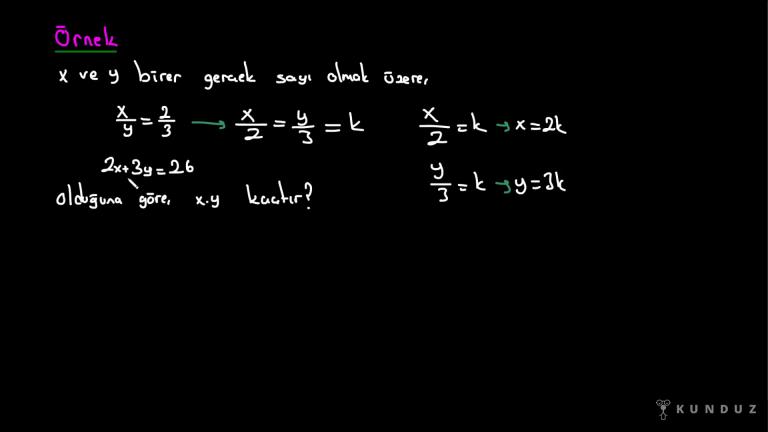 Örnek
x ve y birer gerçek sayı olmak üzere,
x/y = 2/3 → x/2 = y/3 = k
x/2 = k → x = 2k
2x+3y = 26
y/3 = k → y = 3k
olduğuna göre, x.y kaçtır?
KUNDUZ